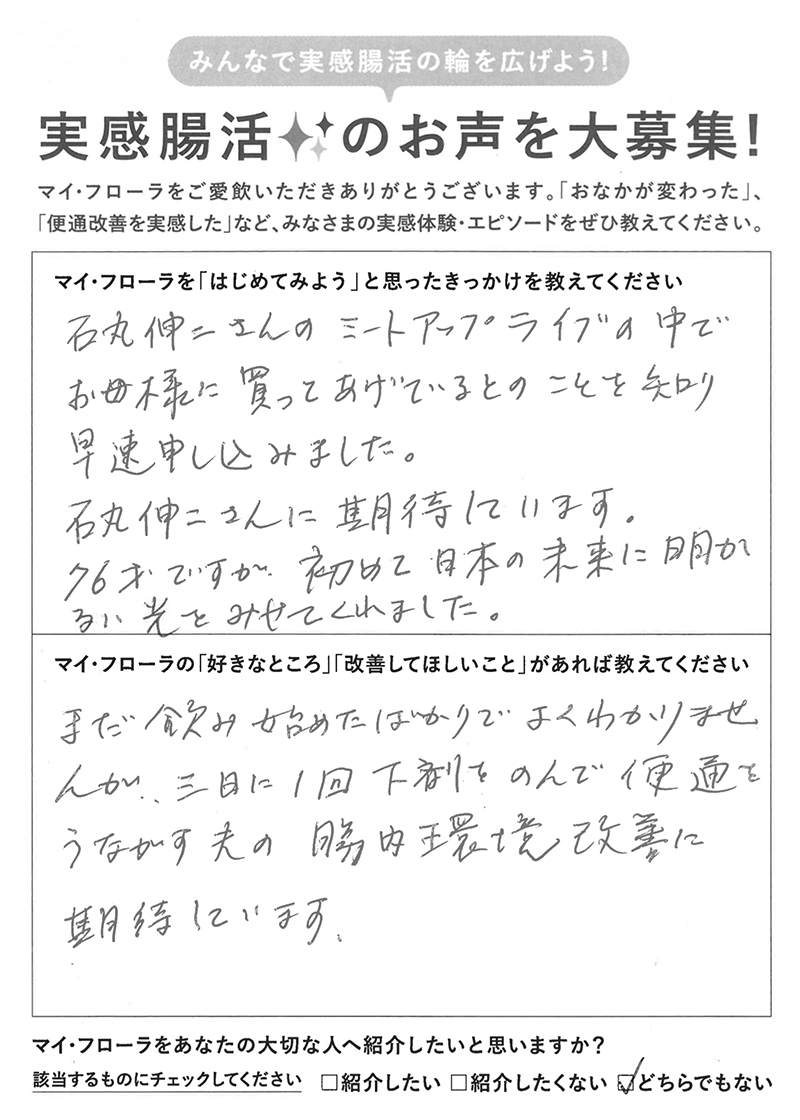 みんなで実感腸活の輪を広げよう!
実感腸活のお声を大募集!
マイ・フローラをご愛飲いただきありがとうございます。「おなかが変わった」、
「便通改善を実感した」など、みなさまの実感体験・エピソードをぜひ教えてください。
マイ・フローラを「はじめてみよう」と思ったきっかけを教えてください
石丸伸二さんのミートアップライブの中で
お母様に買ってあげているとのことを知り
早速申し込みました。
石丸伸二さんに期待しています。
76才ですが、初めて日本の未来に明か
るい光をみせてくれました。
マイ・フローラの「好きなところ」「改善してほしいこと」があれば教えてください
まだ飲み始めたばかりでよくわかりませ
んが、三日に1回下剤をのんで便通を
うながす夫の腸内環境改善に
期待しています。
マイ・フローラをあなたの大切な人へ紹介したいと思いますか?
該当するものにチェックしてください □紹介したい □紹介したくない ☑どちらでもない